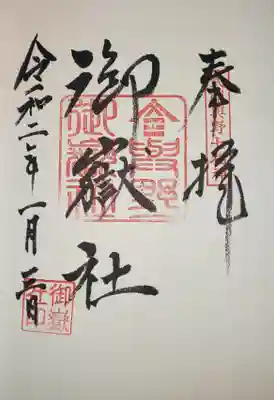 奉拝
御嶽社
令和二年一月三日
御嶽社印